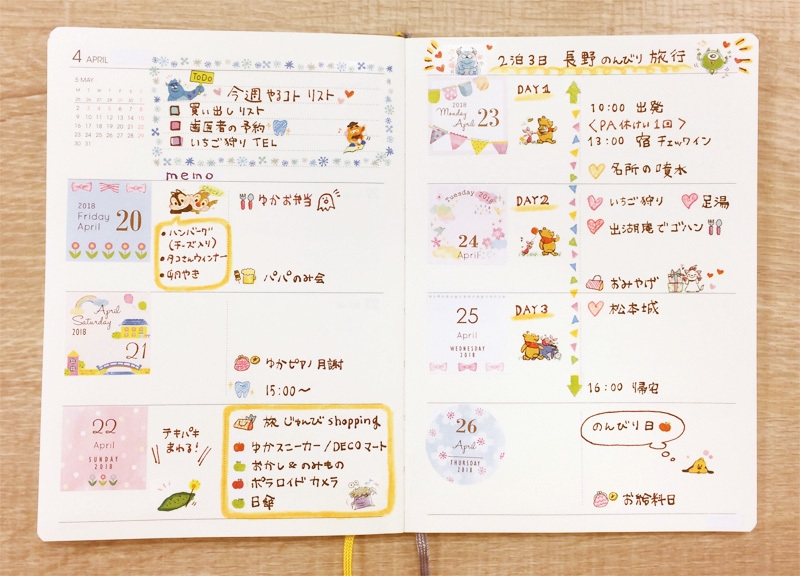 4 APRIL
5 MAY
ToDo
今週 やるコト リスト
買い出しリスト
歯医者の予約
いちご狩り TEL
memo
2018
Friday
April
20
・ハンバーグ
(チーズ入り)
・タコさんウィンナー
・卵やき
ゆかお弁当
パパのみ会
April
Saturday
2018
21
ゆかピアノ月謝
15:00〜
22
April
SUNDAY
2018
テキパキ
まわる!
旅じゅんび shopping
ゆかスニーカー/DECOマート
おかし&のみもの
ポラロイドカメラ
日傘
2泊3日 長野のんびり旅行
2018
Monday
April
23
DAY1
10:00 出発
<PA休けい1回>
13:00 宿チェックイン
名所の噴水
Tuesday 2018
24
April
DAY2
いちご狩り 足湯
でゴハン
おみやげ
25
April
WEDNESDAY
2018
DAY3
松本城
16:00 帰宅
26
April
THURSDAY
2018
のんびり日
お給料日